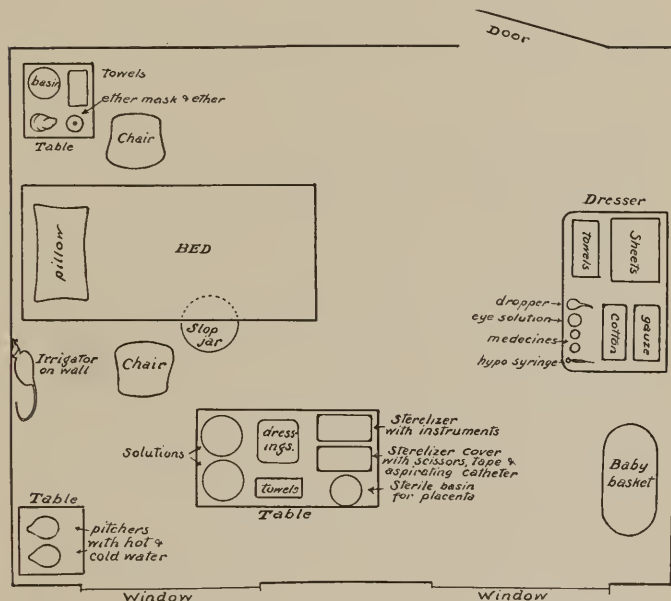 Door
basin
Towels
ether mask & ether
Table
Chair
pillow
BED
Slop
jar
Dresser
Towels
Sheets
dropper
eye solution
medecines
hypo syringe
Cotton
gauze
Irrigator
on wall
Chair
Solutions
dress-
ings.
towels
Sterelizer
with instruments
Sterelizer cover
with scissors, tape &
aspirating catheter
Sterile basin
for placenta
Table
Baby
basket
Table
pitchers
with hot &
cold water
Window
Window